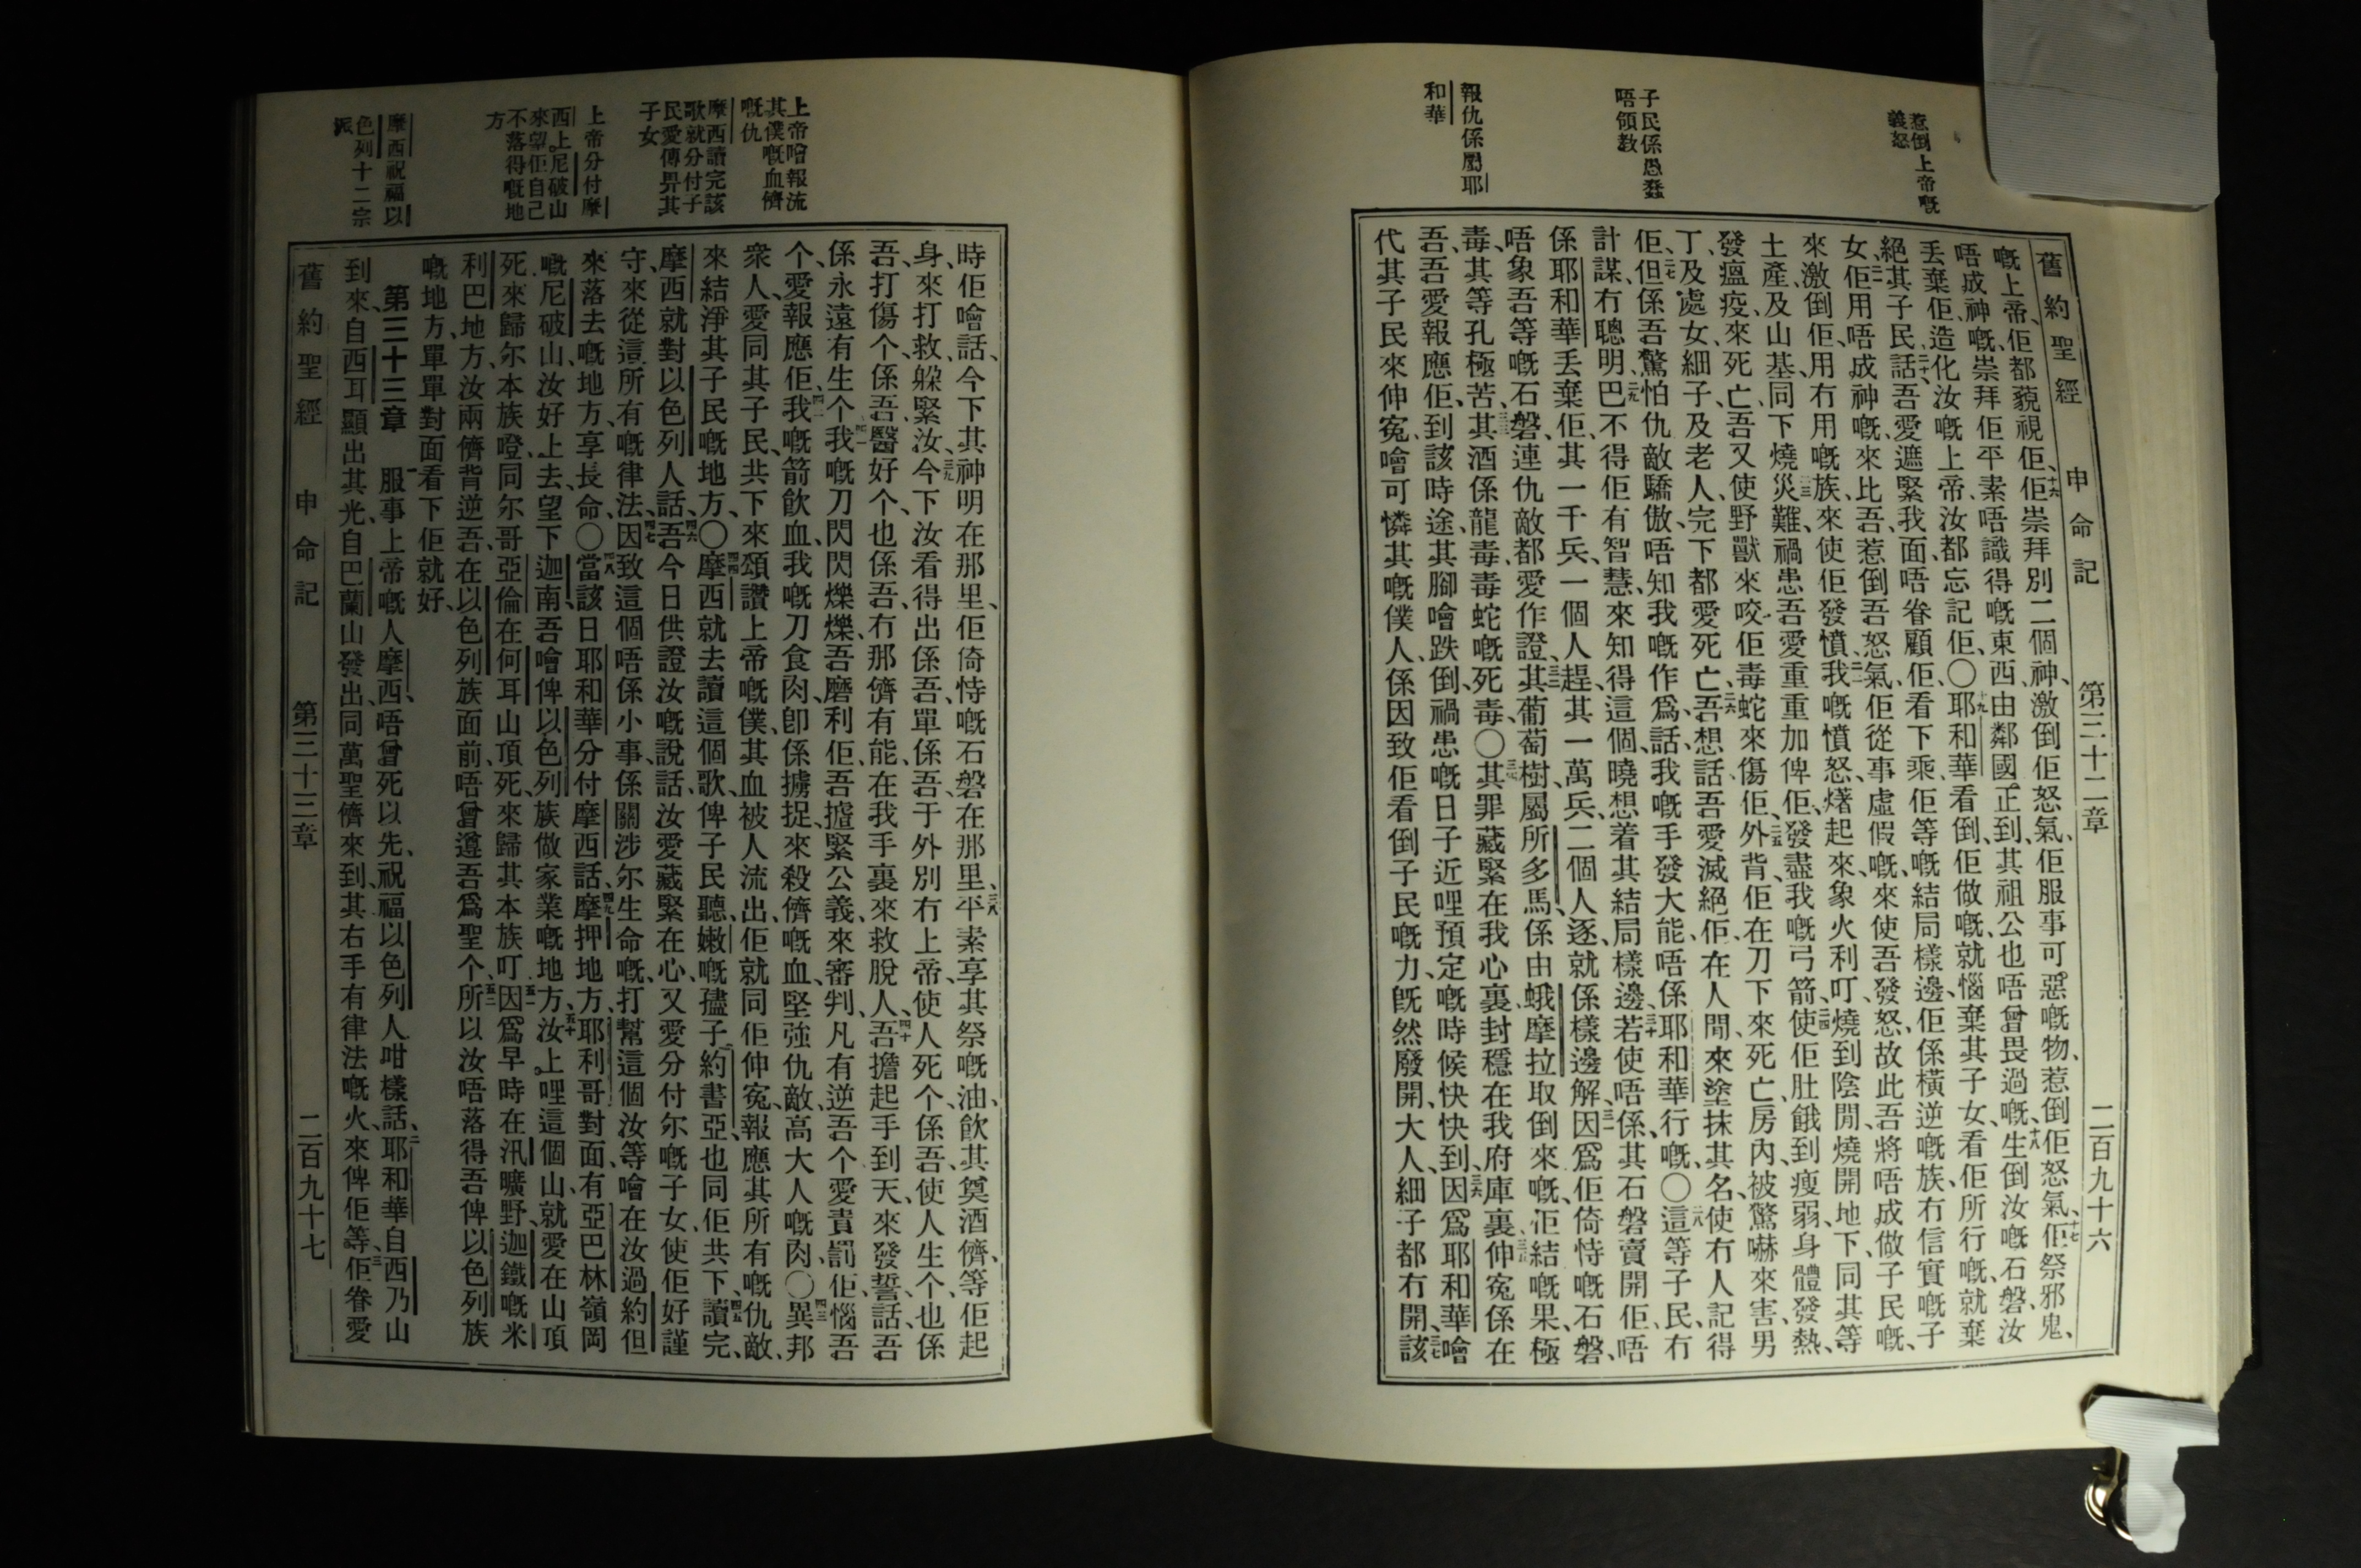 惹倒上帝嘅
義怒
子民係愚蠢
唔領教
報仇係屬耶
和華
舊約聖經 申命記 第三十二章 二百九十六
嘅上帝、佢都藐視佢、十六佢崇拜別二個神、激倒佢怒氣、佢服事可惡嘅物、惹倒佢怒氣、十七佢祭邪鬼、
唔成神嘅、崇拜佢平素唔識得嘅東西、由鄰國正到、其祖公也唔曾畏過嘅、十八生倒汝嘅石磐、汝
丢棄佢、造化汝嘅上帝、汝都忘記佢、〇十九耶和華看倒、佢做嘅、就惱棄其子女、看佢所行嘅、就棄
絕其子民、二十話、吾愛遮緊我面、唔眷顧佢、看下乘佢等嘅結局樣邊、佢係橫逆嘅族、冇信實嘅子
女、二一佢用唔成神嘅、來比吾、惹倒吾怒氣、佢從事虛假嘅、來使吾發怒、故此吾將唔成做子民嘅、
來激倒佢、用冇用嘅族、來使佢發憤、二二我嘅憤怒、㸑起來、象火利叮、燒到陰間、燒開地下、同其等
土產、及山基、同下燒災難、二三禍患吾愛重重加俾佢、發盡我嘅弓箭、二四使佢肚餓到瘦弱、身體發熱、
發瘟疫、來死亡、吾又使野獸來咬佢、毒蛇來傷佢、二五外背、佢在刀下來死亡、房內、被驚嚇來害、男
丁、及處女、細子、及老人、完下都愛死亡、二六吾想話、吾愛滅絕佢、在人間來塗抹其名、使冇人記得
佢、二七但係吾驚怕仇敵驕傲、唔知我嘅作爲、話、我嘅手發大能、唔係耶和華行嘅、〇二八這等子民、冇
計謀、冇聰明、二九巴不得佢有智慧、來知得這個、曉想着其結局樣邊、三十若使唔係其石磐賣開佢、唔
係耶和華丢棄佢、其一千兵、一個人趕、其一萬兵、二個人逐、就係樣邊解、三一因爲佢倚恃嘅石磐、
唔象吾等嘅石磐、連仇敵都愛作證、三二其葡萄樹、屬所多馬、係由蛾摩拉取倒來嘅、佢結嘅果、極
毒、其等孔極苦、三三其酒係龍毒、毒蛇嘅死毒、〇三四其罪藏緊在我心裏、封穩在我府庫裏、三五伸寃係在
吾、吾愛報應佢、到該時途、其腳噲跌倒、禍患嘅日子近哩、預定嘅時候快快到、三六因爲耶和華噲
代其子民來伸寃、噲可憐其嘅僕人、係因致佢看倒子民嘅力、旣然廢開、大人、細子都冇開、三七該
上帝噲報流
其僕嘅血儕
嘅仇
摩西讀完該
歌就分付子
民愛傳畀其
子女
上帝分付摩
西上尼破山
來望佢自己
不落得嘅地
方
摩西祝福以
色列十二宗
派
時佢噲話、今下其神明在那里、佢倚恃嘅石磐在那里、三八平素享其祭嘅油、飮其奠酒儕、等佢起
身、來打救、躱緊汝、三九今下汝看得出係吾、單係吾、于外別冇上帝、使人死个、係吾、使人生个、也係
吾、打傷个、係吾、醫好个、也係吾、冇那儕有能、在我手裏來救脫人、四十吾擔起手到天、來發誓話、吾
係永遠有生个、四一我嘅刀閃閃爍爍、吾磨利佢、吾揸緊公義、來審判、凡有逆吾个、愛責罰佢、惱吾
个、愛報應佢、四二我嘅箭飮血、我嘅刀食肉、卽係擄捉、來殺儕嘅血、堅強仇敵、高大人嘅肉、〇四三異邦
衆人、愛同其子民、共下來頌讚上帝嘅僕、其血被人流出、佢就同佢伸寃、報應其所有嘅仇敵、
來結淨其子民嘅地方、〇四四摩西就去讀這個歌、俾子民聽、嫩嘅孻子約書亞、也同佢共下、四五讀完、
摩西就對以色列人話、四六吾今日供證汝嘅說話、汝愛藏緊在心、又愛分付尔嘅子女、使佢好謹
守、來從這所有嘅律法、四七因致這個唔係小事、係關涉尔生命嘅、打幫這個、汝等噲在汝過約但
來落去嘅地方、享長命、〇四八當該日耶和華分付摩西話、四九摩押地方、耶利哥對面、有亞巴林嶺岡
嘅尼破山、汝好上去、望下迦南、吾噲俾以色列族做家業嘅地方、五十汝上哩這個山、就愛在山頂
死、來歸尔本族噔、同尔哥亞倫在何耳山頂死、來歸其本族叮、五一因爲早時在汛曠野、迦鐵嘅米
利巴地方、汝兩儕背逆吾、在以色列族面前、唔曾遵吾爲聖个、五二所以汝唔落得吾俾以色列族
嘅地方、單單對面看下佢就好、
第三十三章 一服事上帝嘅人摩西、唔曾死以先、祝福以色列人咁樣話、二耶和華自西乃山
到來、自西耳顯出其光、自巴蘭山發出、同萬聖儕來到、其右手有律法嘅火、來俾佢等、三佢眷愛
舊約聖經 申命記 第三十三章 二百九十七